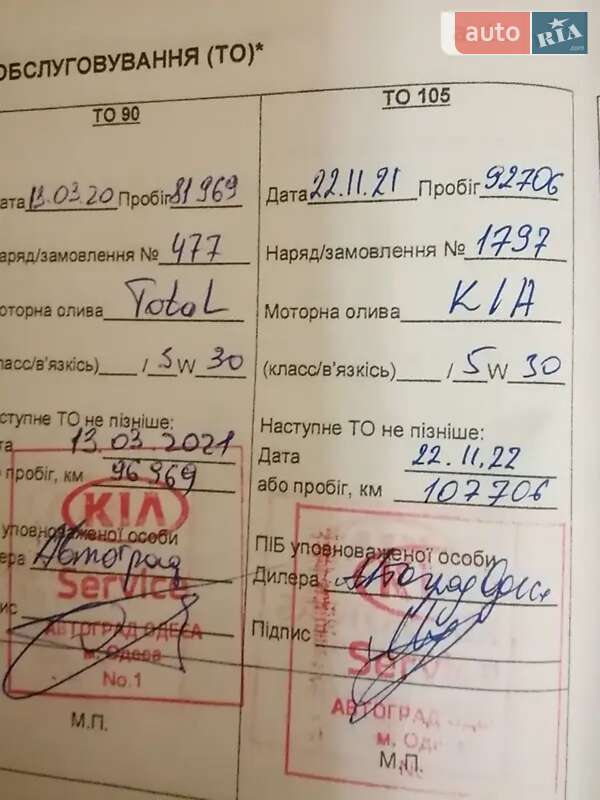 auto RIA .com
ОБСЛУГОВУВАННЯ (ТО)*
ТО 90
ата 13.03.20 Пробіг 81969
аряд/замовлення № 477
оторна олива Total
ласс/в'язкісь) / 5 W 30
аступне ТО не пізніше:
та 13.03.2021
о пробіг, км 96969
уповноваженої особи
ера Автоград
ис
KIA
Service
АВТОГРАД ОДЕСА
м. Одеса
No.1
М.П.
ТО 105
Дата 22.11.21 Пробіг 92706
Наряд/замовлення № 1797
Моторна олива KIA
(класс/в'язкісь) / 5 W 30
Наступне ТО не пізніше:
Дата 22.11.22
або пробіг, км 107706
ПІБ уповноваженої особи
Дилера Автоград Одеса
Підпис
Service
АВТОГРАД ОДЕ
м. Одес
М.П.